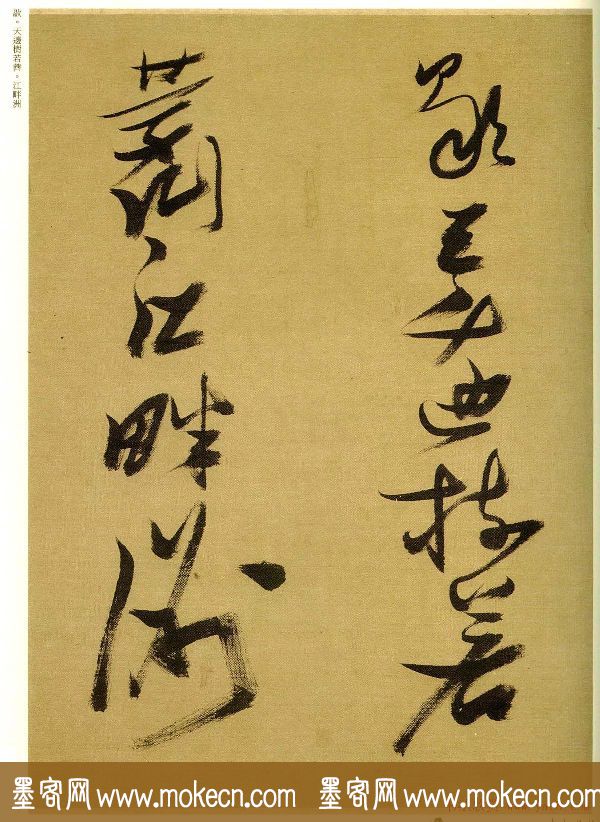 歇。天邊樹若薺。江畔洲
歇天邊樹若
薺江畔洲
墨客网 www.mokecn.com 墨客网 www.mokecn.com